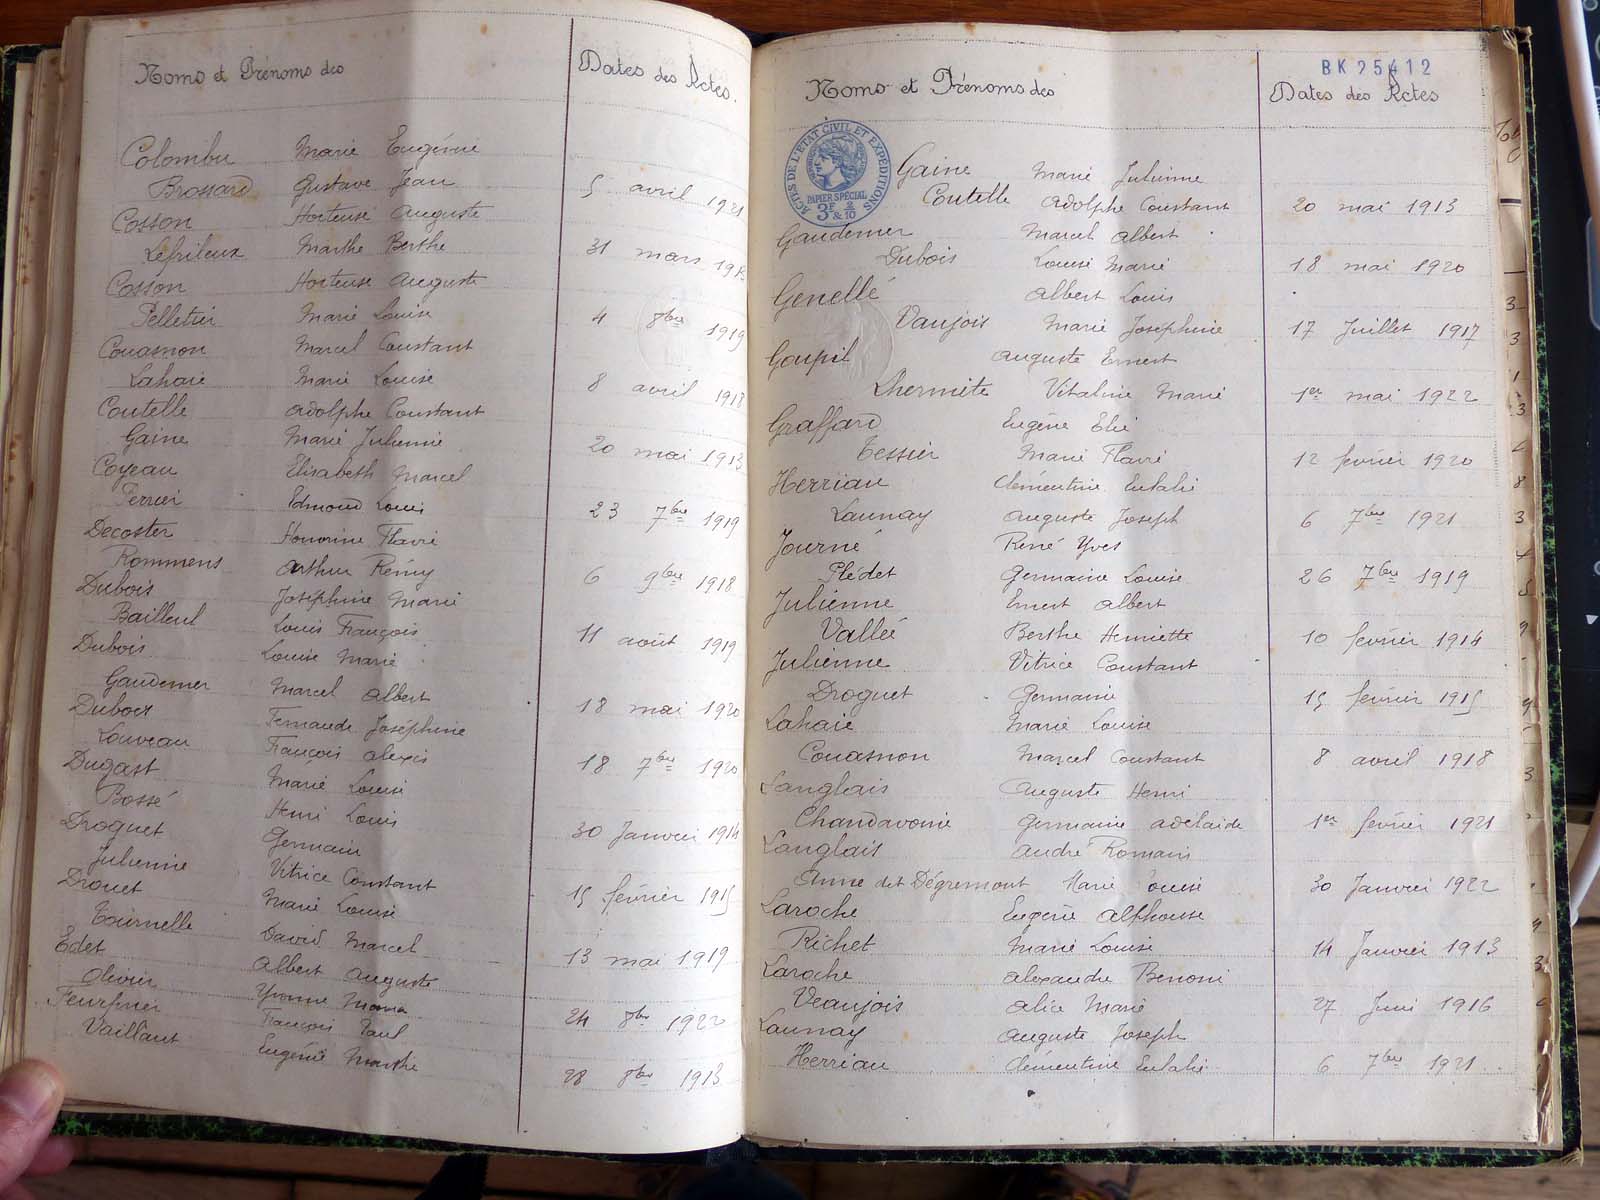 Noms et Prénoms des
Dates des Actes.
Colombu Marie Eugénie
Brossard Gustave Jean 5 avril 1921
Cosson Hortense Auguste
Lepileux Marthe Berthe 31 mars
Cosson Hortense Auguste
Pelletier Marie Louise 4 8bre 1919
Couasnon Marcel Constant
Lahaie Marie Louise 8 avril 1918
Coutelle Adolphe Constant
Gaine Marie Julienne 20 mai 1913
Coyeau Elisabeth Marcel
Perrier Edmond Louis 23 7bre 1919
Decoster Honorine Flavie
Rommens Arthur Rémy 6 9bre 1918
Dubois Joséphine Marie
Bailleul Louis François 11 août 1919
Dubois Louise Marie
Gaudemer Marcel Albert 18 mai 1920
Dubois Fernande Joséphine
Louveau François Alexis 18 7bre 1920
Dugast Marie Louise
Bossé Henri Louis 30 Janvier 1914
Droguet Germain
Julienne Vitrice Constant 15 février 1915
Drouet Marie Louise
Tournelle David Marcel 13 mai 1919
Edet Albert Auguste
Olivier Yvonne Maria 24 8bre 1922
François Paul
Vaillant Eugénie Marthe 28 8bre 1913
BK 25412
Noms et Prénoms des
Dates des Actes
ACTES DE L'ETAT CIVIL ET EXPÉDITIONS
PAPIER SPÉCIAL
3F & 2/10
Gaine Marie Julienne
Coutelle Adolphe Constant 20 mai 1913
Gaudemer Marcel Albert
Dubois Louise Marie 18 mai 1920
Genellé Albert Louis
Vaujois Marie Joséphine 17 Juillet 1917
Goupil Auguste Ernest
Lhermite Vitaline Marie 1er mai 1922
Graffard Eugène Elie
Tessier Marie Flavie 12 février 1920
Herriau Clémentine Eulalie
Launay Auguste Joseph 6 7bre 1921
Journé René Yves
Plédet Germaine Louise 26 7bre 1919
Julienne Ernest Albert
Vallée Berthe Henriette 10 février 1914
Julienne Vitrice Constant
Droguet Germaine 15 février 1915
Lahaie Marie Louise
Couasnon Marcel Constant 8 avril 1918
Langlais Auguste Henri
Chandavoine Germaine Adelaide 1er février 1921
Langlais André Romain
Anne dit Dégremont Marie Louise 30 Janvier 1922
Laroche Eugène Alphonse
Richet Marie Louise 14 Janvier 1913
Laroche Alexandre Benoni
Veaujois Alice Marie 27 Juin 1916
Launay Auguste Joseph
Herriau Clémentine Eulalie 6 7bre 1921